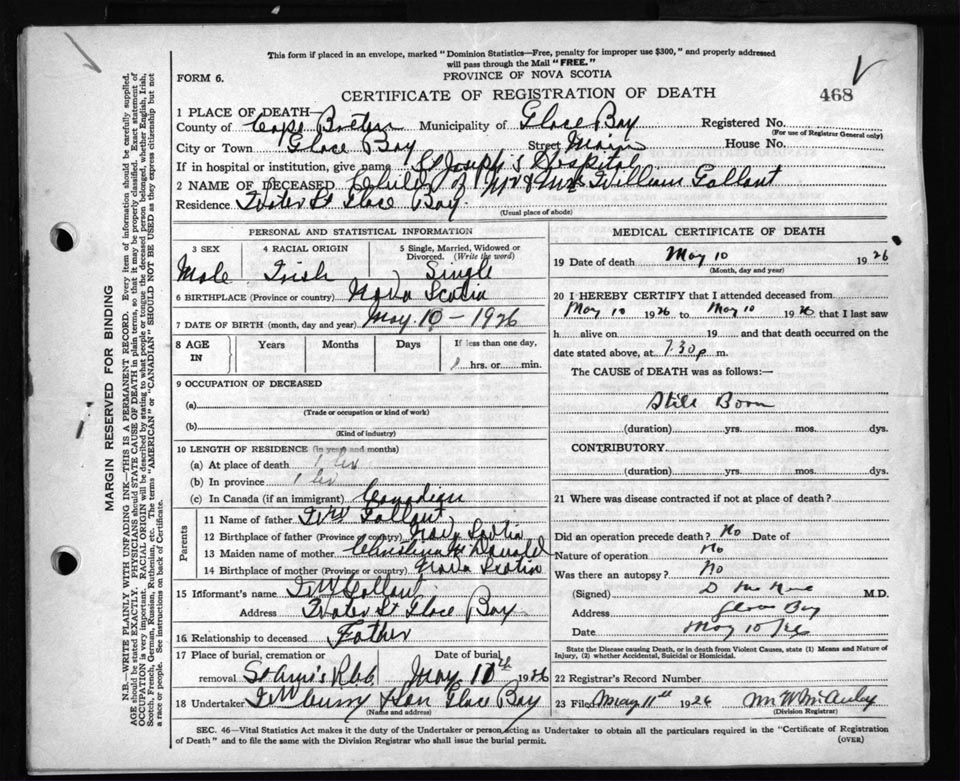 This form if placed in an envelope, marked "Dominion Statistics—Free, penalty for improper use $300," and properly addressed
will pass through the Mail "FREE."
FORM 6.
PROVINCE OF NOVA SCOTIA
CERTIFICATE OF REGISTRATION OF DEATH
468
1 PLACE OF DEATH
County of Cape Breton Municipality of Glace Bay Registered No.
(For use of Registrar General only)
City or Town Glace Bay Street Main House No.
If in hospital or institution, give name St Joseph's Hospital
2 NAME OF DECEASED Child of Mr & Mrs William Gallant
Residence Water St Glace Bay.
(Usual place of abode)
PERSONAL AND STATISTICAL INFORMATION
3 SEX 4 RACIAL ORIGIN 5 Single, Married, Widowed or Divorced. (Write the word)
Male Irish Single
6 BIRTHPLACE (Province or country) Nova Scotia
7 DATE OF BIRTH (month, day and year) May 10 - 1926
8 AGE IN Years Months Days If less than one day,
hrs. or min.
9 OCCUPATION OF DECEASED
(a)
(Trade or occupation or kind of work)
(b)
(Kind of industry)
10 LENGTH OF RESIDENCE (in years and months)
(a) At place of death 1
(b) In province 1
(c) In Canada (if an immigrant) Canadian
Parents
11 Name of father Wm Gallant
12 Birthplace of father (Province or country) Nova Scotia
13 Maiden name of mother Christena McDonald
14 Birthplace of mother (Province or country) Nova Scotia
15 Informant's name Wm Gallant
Address Water St Glace Bay
16 Relationship to deceased Father
17 Place of burial, cremation or removal Date of burial
St Ann's May 1926
18 Undertaker & Son Glace Bay
(Name and address)
MEDICAL CERTIFICATE OF DEATH
19 Date of death May 10 1926
(Month, day and year)
20 I HEREBY CERTIFY that I attended deceased from
May 10 1926 to May 10 1926 that I last saw
h alive on 19 and that death occurred on the
date stated above, at 7.30 p m.
The CAUSE of DEATH was as follows:—
Still Born
(duration) yrs. mos. dys.
CONTRIBUTORY
(duration) yrs. mos. dys.
21 Where was disease contracted if not at place of death?
Did an operation precede death? No Date of
Nature of operation No
Was there an autopsy? No
(Signed) M.D.
Address Glace Bay
Date May 10/26
State the Disease causing Death, or in death from Violent Causes, state (1) Means and Nature of
Injury, (2) whether Accidental, Suicidal or Homicidal.
22 Registrar's Record Number
23 Filed May 11th 1926
(Division Registrar)
SEC. 46—Vital Statistics Act makes it the duty of the Undertaker or person acting as Undertaker to obtain all the particulars required in the "Certificate of Registration
of Death" and to file the same with the Division Registrar who shall issue the burial permit.
(OVER)
MARGIN RESERVED FOR BINDING
N.B.—WRITE PLAINLY WITH UNFADING INK—THIS IS A PERMANENT RECORD. Every item of information should be carefully supplied.
AGE should be stated EXACTLY. PHYSICIANS should STATE CAUSE OF DEATH in plain terms, so that it may be properly classified. Exact statement of
OCCUPATION is very important. RACIAL ORIGIN will be described by stating to what people or tongue the deceased person belonged, whether English, Irish,
Scotch, French, German, Russian, Ruthenian, etc. The terms "AMERICAN" or "CANADIAN" SHOULD NOT BE USED as they express citizenship but not
a race or people. See instructions on back of Certificate.